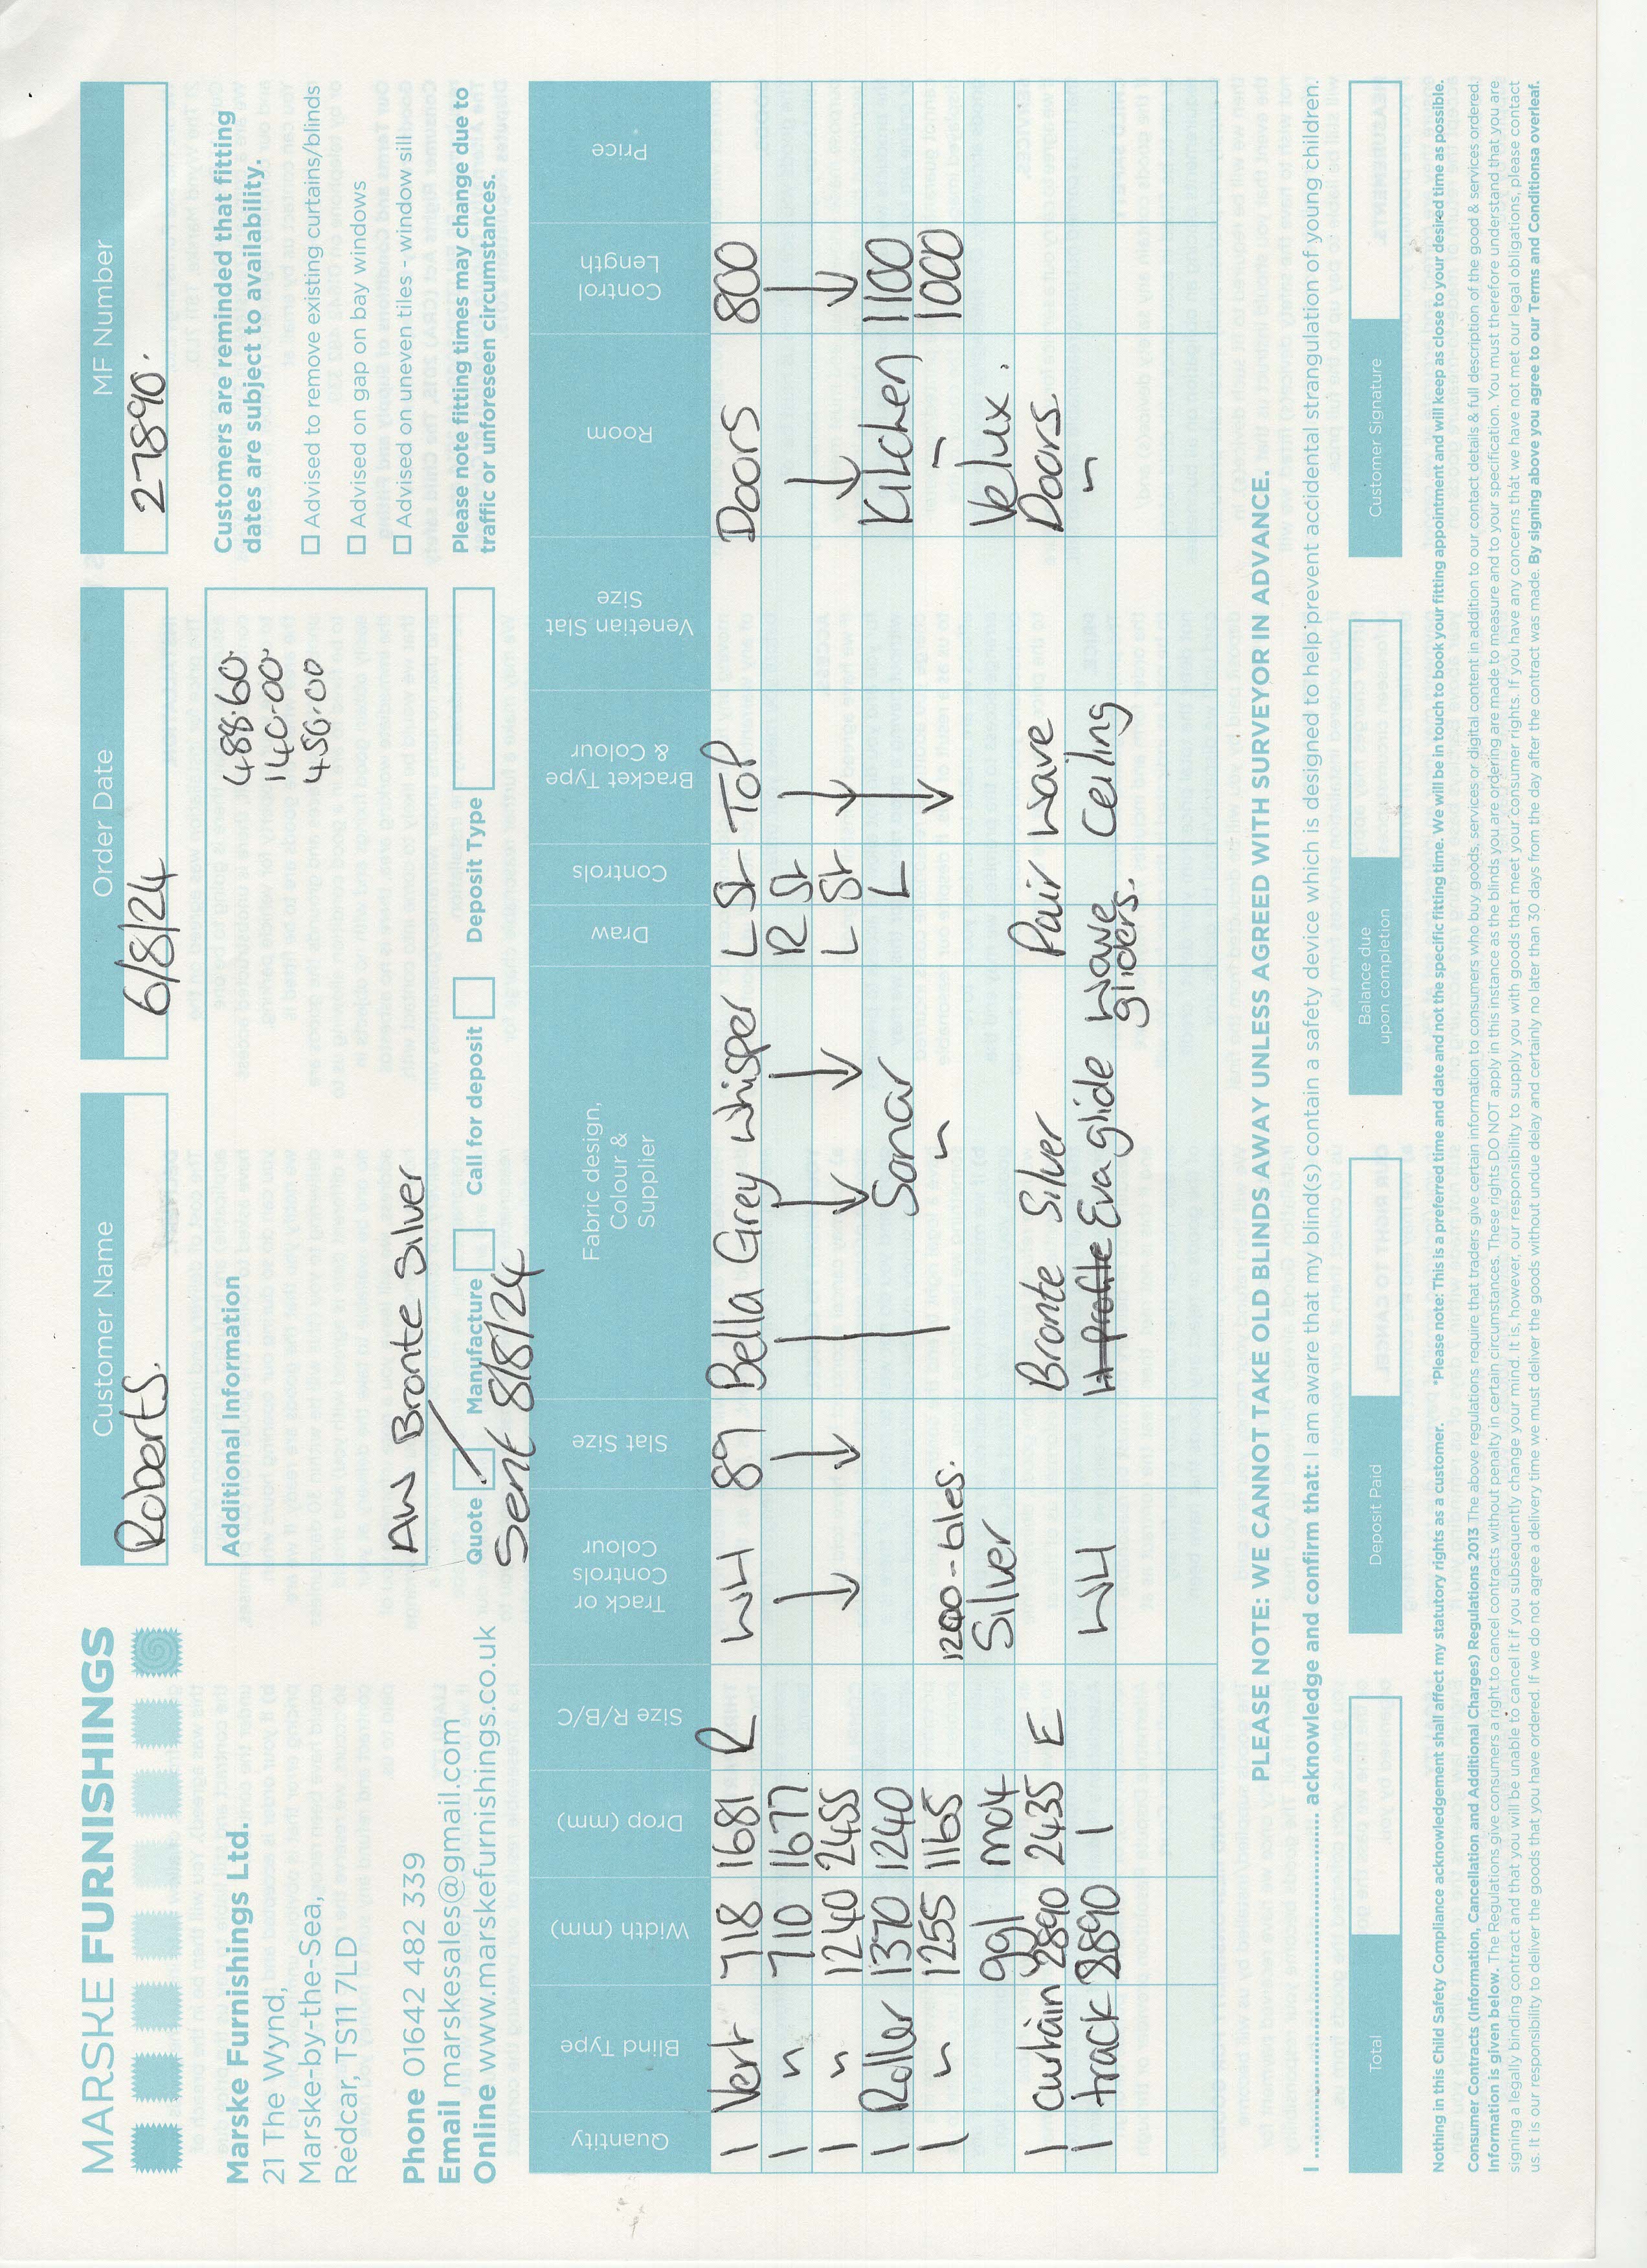 MARSKE FURNISHINGS
Marske Furnishings Ltd.
21 The Wynd,
Marske-by-the-Sea,
Redcar, TS11 7LD
Phone 01642 482 339
Email marskesales@gmail.com
Online www.marskefurnishings.co.uk
Customer Name
Roberts.
Order Date
6/8/24
MF Number
27890.
Additional Information
488.60.
140.00.
456.00
AW Bronte Silver
Quote Manufacture Call for deposit Deposit Type
Sent 8/8/24
Customers are reminded that fitting
dates are subject to availability.
Advised to remove existing curtains/blinds
Advised on gap on bay windows
Advised on uneven tiles - window sill
Please note fitting times may change due to
traffic or unforeseen circumstances.
Quantity Blind Type Width (mm) Drop (mm) Size R/B/C Track or Controls Colour Slat Size Fabric design, Colour & Supplier Draw Controls Bracket Type & Colour Venetian Slat Size Room Control Length Price
1 Vert 718 1681 R WH 89 Bella Grey Whisper L St Top Doors 800
1 " 710 1677 R St
1 " 1240 2455 L St
1 Roller 1370 1240 Sonar L Kitchen 1100
1 " 1255 1165 1200-bles. " " 1000
ggl mo4 Silver Velux.
1 curtain 2890 2435 E Bronte Silver Pair Wave Doors.
1 track 2890 1 WH H-profile Evaglide Wave gliders. Ceiling "
PLEASE NOTE: WE CANNOT TAKE OLD BLINDS AWAY UNLESS AGREED WITH SURVEYOR IN ADVANCE.
I .......................................................... acknowledge and confirm that: I am aware that my blind(s) contain a safety device which is designed to help prevent accidental strangulation of young children.
Total
Deposit Paid
Balance due
upon completion
Customer Signature
Nothing in this Child Safety Compliance acknowledgement shall affect my statutory rights as a customer. *Please note: This is a preferred time and date and not the specific fitting time. We will be in touch to book your fitting appointment and will keep as close to your desired time as possible.
Consumer Contracts (Information, Cancellation and Additional Charges) Regulations 2013 The above regulations require that traders give certain information to consumers who buy goods, services or digital content in addition to our contact details & full description of the good & services ordered.
Information is given below. The Regulations give consumers a right to cancel contracts without penalty in certain circumstances. These rights DO NOT apply in this instance as the blinds you are ordering are made to measure and to your specification. You must therefore understand that you are
signing a legally binding contract and that you will be unable to cancel it if you subsequently change your mind. It is, however, our responsibility to supply you with goods that meet your consumer rights. If you have any concerns that we have not met our legal obligations, please contact
us. It is our responsibility to deliver the goods that you have ordered. If we do not agree a delivery time we must deliver the goods without undue delay and certainly no later than 30 days from the day after the contract was made. By signing above you agree to our Terms and Conditionsa overleaf.